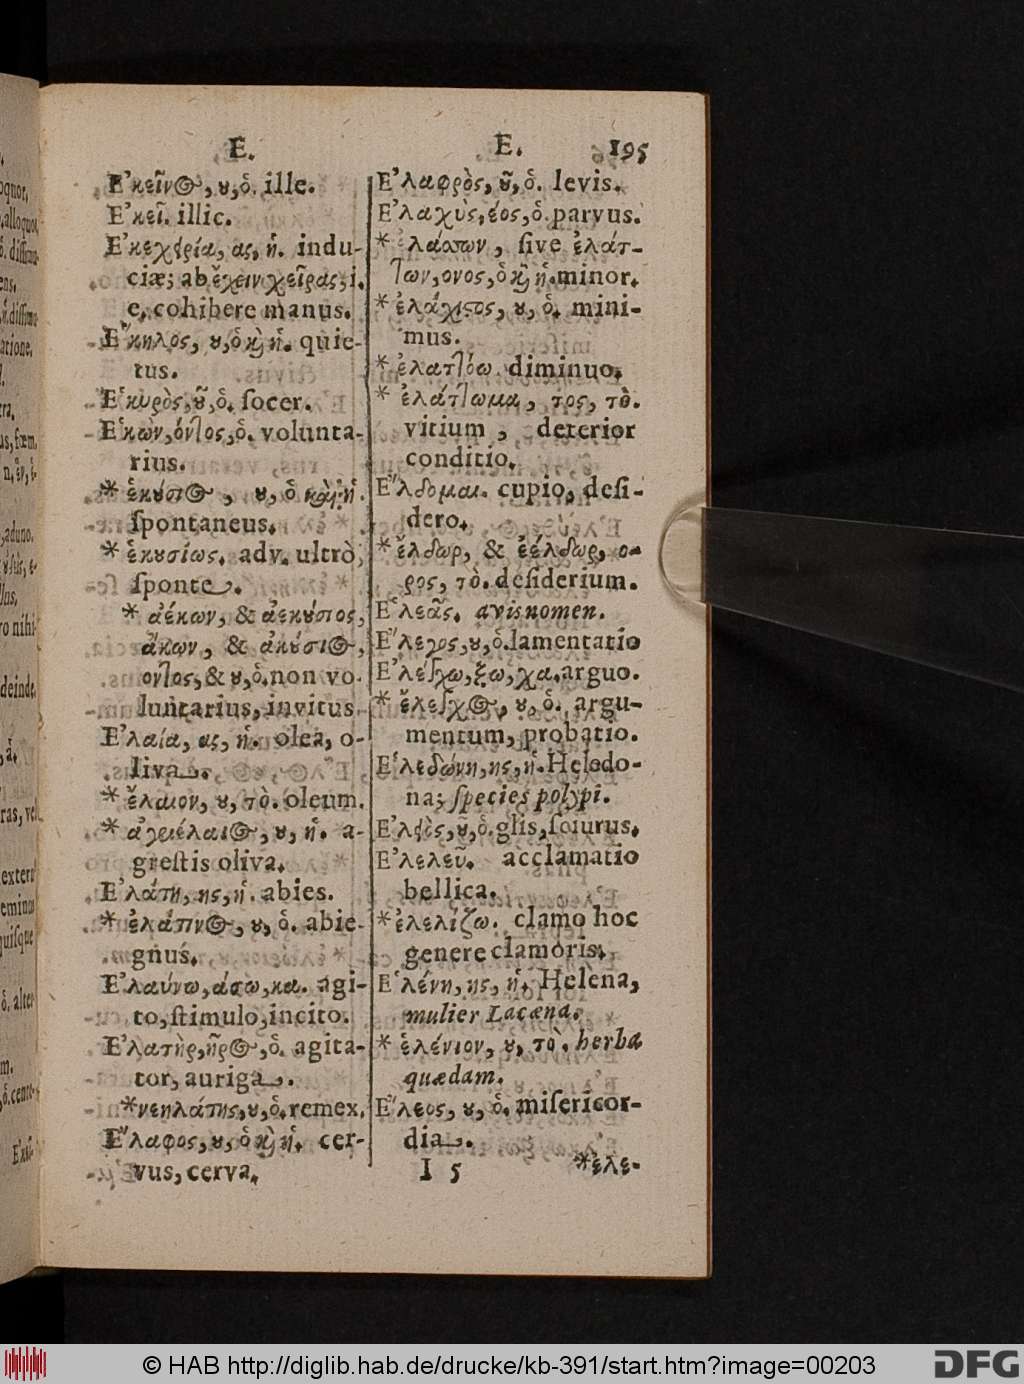 E.
Ἐκεῖνος, ου, ὁ. ille.
Ἐκεῖ. illic.
Ἐκεχειρία, ας, ἡ. indu-
ciæ; ab ἔχειν χεῖρας, i.
e, cohibere manus.
Ἕκηλος, ου, ὁ καὶ ἡ. quie-
tus.
Ἑκυρὸς, οῦ, ὁ. ſocer.
Ἑκὼν, όντος, ὁ. volunta-
rius.
* ἑκούσιος, ου, ὁ καὶ ἡ.
ſpontaneus.
* ἑκουσίως. adv. ultrò,
ſponte.
* ἀέκων, & ἀεκούσιος,
ἄκων, & ἀκούσιος,
οντος, & ου, ὁ. non vo-
luntarius, invitus
Ἐλαία, ας, ἡ. olea, o-
liva.
* ἔλαιον, ου, τὸ. oleum.
* ἀγριέλαιος, ου, ἡ. a-
greſtis oliva.
Ἐλάτη, ης, ἡ. abies.
* ἐλάτινος, ου, ὁ. abie-
gnus.
Ἐλαύνω, άσω, κα. agi-
to, ſtimulo, incito.
Ἐλατὴρ, ῆρος, ὁ. agita-
tor, auriga.
* νεηλάτης, ου, ὁ. remex.
Ἔλαφος, ου, ὁ καὶ ἡ. cer-
vus, cerva.
E. 195
Ἐλαφρὸς, οῦ, ὁ. levis.
Ἐλαχὺς, έος, ὁ. parvus.
* ἐλάσσων, ſive ἐλάτ-
των, ονος, ὁ καὶ ἡ. minor.
* ἐλάχιστος, ου, ὁ. mini-
mus.
* ἐλαττόω diminuo.
* ἐλάττωμα, τος, τὸ.
vitium, deterior
conditio.
Ἔλδομαι. cupio, deſi-
dero.
* ἔλδωρ, & ἐέλδωρ, ο-
ρος, τὸ. deſiderium.
Ἐλεᾶς. avis nomen.
Ἔλεγος, ου, ὁ. lamentatio
Ἐλέγχω, ξω, χα. arguo.
* ἔλεγχος, ου, ὁ. argu-
mentum, probatio.
Ἑλεδώνη, ης, ἡ. Heledo-
na; ſpecies polypi.
Ἐλειὸς, οῦ, ὁ. glis, ſciurus.
Ἐλελεῦ. acclamatio
bellica.
* ἐλελίζω. clamo hoc
genere clamoris.
Ἑλένη, ης, ἡ. Helena,
mulier Lacæna.
* ἑλένιον, ου, τὸ. herba
quædam.
Ἔλεος, ου, ὁ. miſericor-
dia.
I 5 *ἐλε-
© HAB http://diglib.hab.de/drucke/kb-391/start.htm?image=00203
DFG